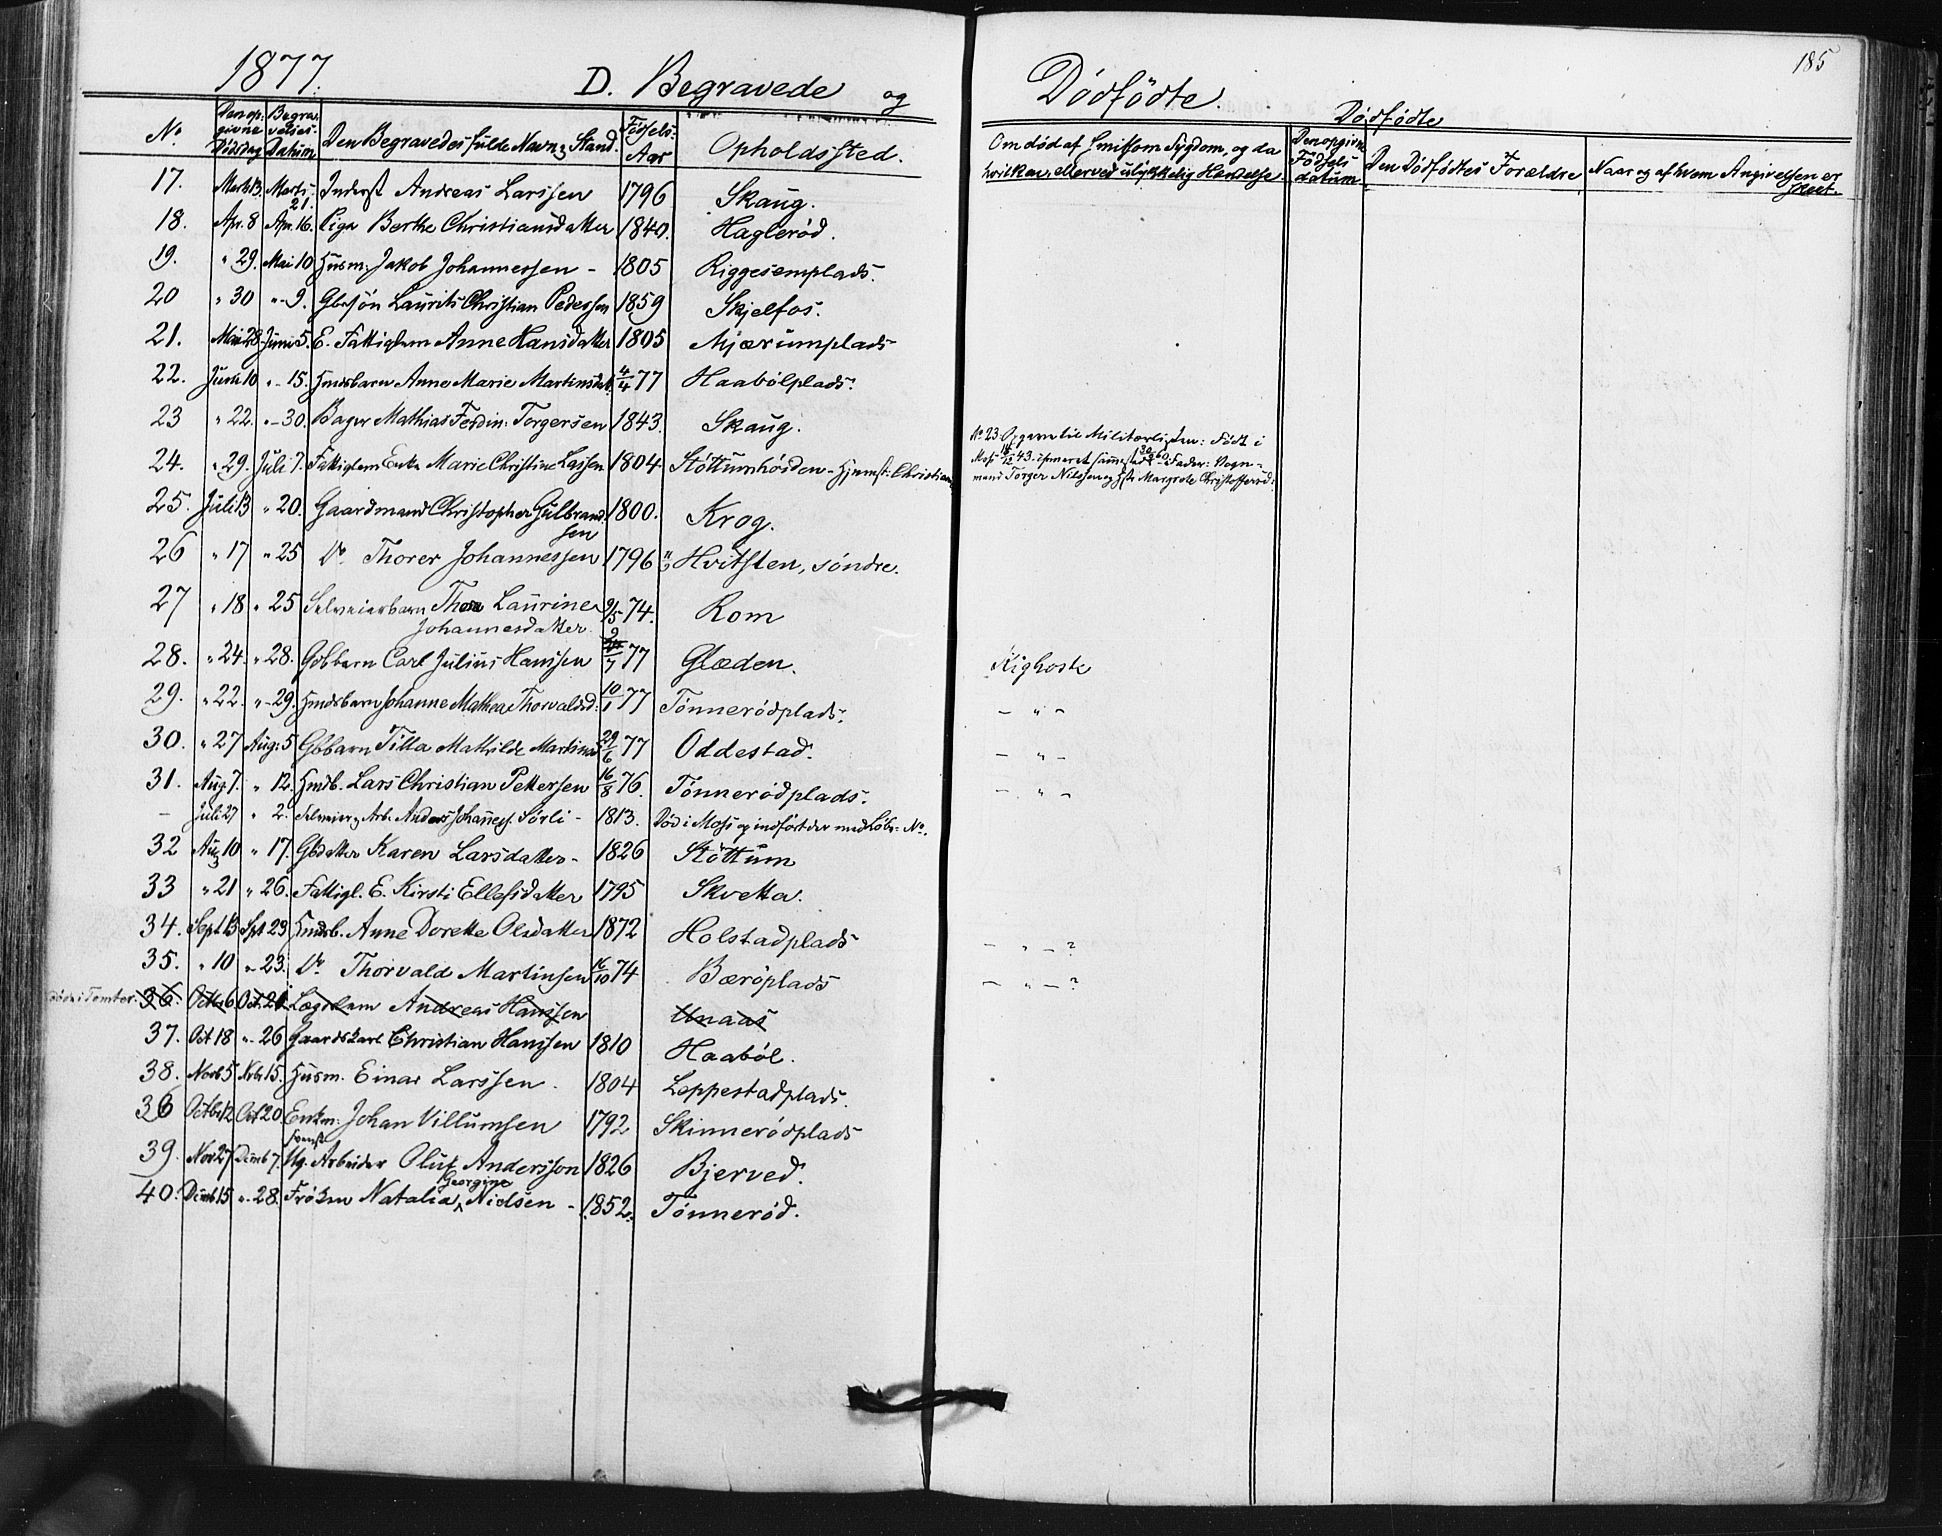 1877. D. Begravede og
Dødfødte.
185
No
Den op-
givne
Dødsdag
Begra-
velses-
Datum
Den Begravedes fulde Navn og Stand.
Fødsels-
Aar
Opholdssted.
Om død af smitsom Sygdom, og da
hvilken, eller ved ulykkelig Hændelse
Dødfødte
Den opgivne
Fødsels
datum
Den Dødfødtes Forældre
Naar og af hvem Angivelsen er
skeet.
17. Marts 13 Marts 21. Inderst Andreas Larssen 1796 Skaug.
18. Apr. 8 Apr. 16. Pige Berthe Christiansdatter 1840. Haglerød.
19. " 29. Mai 10 Husm. Jakob Johannessen - 1805 Riggesemplads.
20 " 30 " - 9. Gbsøn Laurits Christian Pedersen 1859 Skjelfos.
21. Mai 28 Juni 5. E. Fattiglem Anne Hansdatter 1805 Mjærumplads
22. Juni 10 " - 15. Hmdsbarn Anne Marie Martinsdat. 4/4 77 Haabølplads.
23 " 22. " - 30. Bager Mathias Ferdin: Torgersen 1843. Skaug.
No 23. Opgave til Militærlisten: Født i
Moss 43. Fader: Vogn-
mand Torger Nilssen og Hstr Margrete Christoffersd:
24. " 29. Juli 7. Fattiglem Enke Marie Christine Lassen 1804 Støttumhösden - Hjemst: Christian
25. Juli 13 " 20. Gaardmand Christopher Gulbrand-
sen 1800. Krog.
26 " 17 " 25 Do Thorer Johannessen 1796 Hvitsten, søndre.
27 " 18 " 25 Selveierbarn Thea Laurine
Johannesdatter 9/5 74. Rom
28. " 24. " 28. Gbbarn Carl Julius Hanssen 2/7 77 Glæden. Kighoste
29. " 22. " - 29. Hmdsbarn Johanne Mathea Thorvaldsd. 10/1 77 Tønnerødplads. - " -
30. " 27 Aug: 5 Gbbarn Tilla Mathilde Martinsd. 29/6 77 Oddestad. - " -
31. Aug 7. " 12. Hmdb. Lars Christian Pettersen 16/8 76. Tønnerødplads. - " -
- Juli 27 " 2. Selveier og Arb. Anders Johannes. Sørli - 1813. Død i Moss og indført der med Løbe-No.
32 Aug 10 " 17. Gbdatter Karen Larsdatter - 1826 Støttum
33 " 21 " 26. Fattigl. E. Kirsti Ellefsdatter 1795 Skvetta.
34. Sept 13 Spt 23 Hmdsb. Anne Dorette Olsdatter 1872 Holstadplads - " - ?
35. " 10 " 23. Do Thorvald Martinsen 16/10 74 Bærøplads - " - ?
Død i Tomter. 36. Octb 6 Oct. 20 Lægdslem Andreas Hanssen Unaas
37. Oct 18 " - 26 Gaardskarl Christian Hanssen 1810 Haabøl.
38. Novb 5 Nvbr 15. Husm. Einar Larssen. 1804 Leppestadplads.
36 Octbr 12 Oct 20. Enkm: Johan Villumsen 1792 Skinnerødplads
39. Nov 27 Dcmb 7. Svensk
Ug. Arbeider Oluf Andersson 1826 Bjerved.
40. Dcmb 15 " - 28. Frøken Natalia Georgine Nielsen - 1852. Tønnerød.